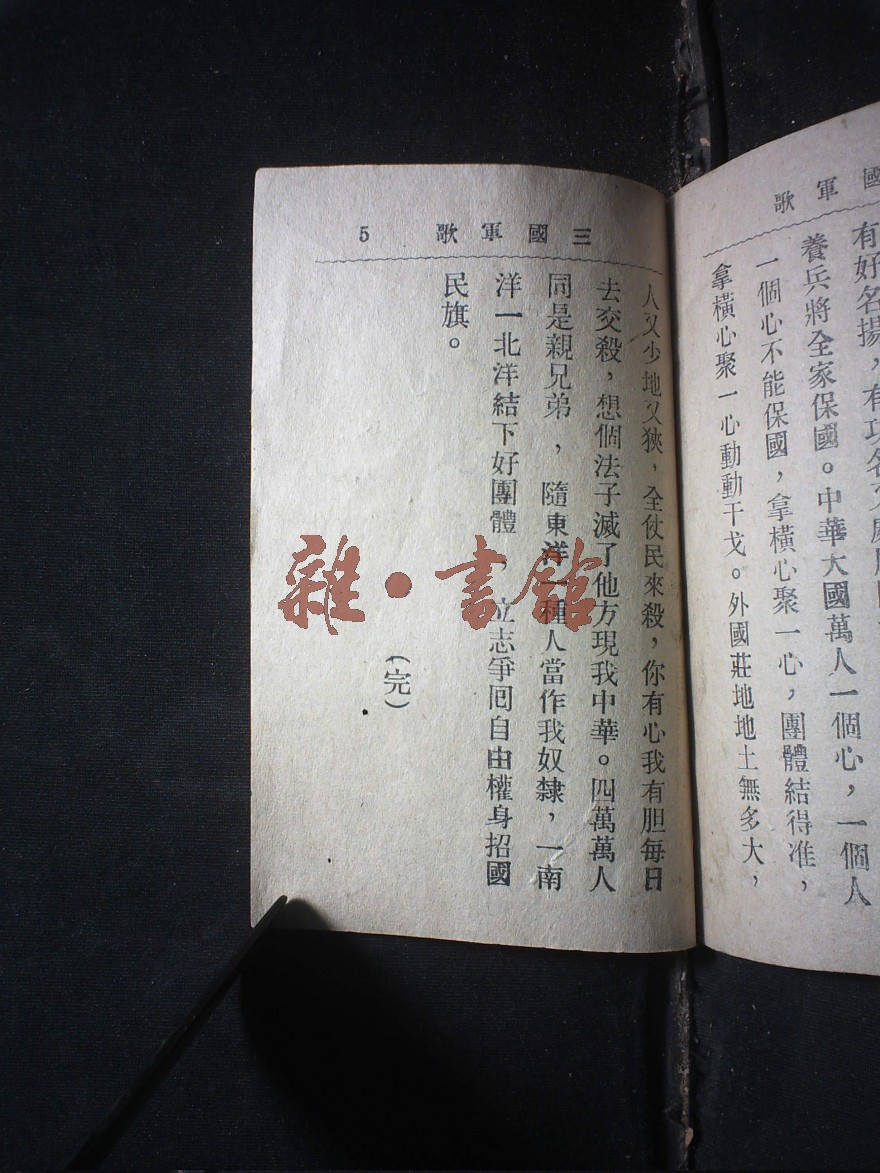 國軍歌
養兵將全家保國。中華大國萬人一個心，一個人
一個心不能保國，拿橫心聚一心，團體結得准，
拿橫心聚一心動動干戈。外國莊地地土無多大，
三國軍歌 5
人又少地又狹，全仗民來殺，你有心我有胆每日
去交殺，想個法子滅了他方現我中華。四萬萬人
同是親兄弟，隨東洋一種人當作我奴隸，一南
洋一北洋結下好團體，立志爭囘自由權身招國
民旗。
（完）
雜·書館